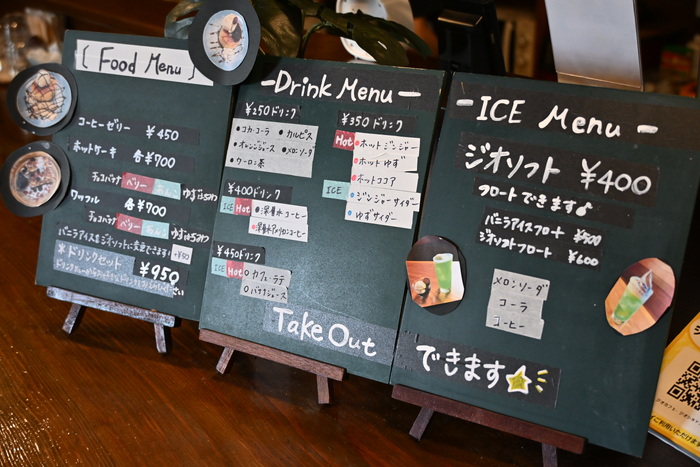 { Food Menu }
コーヒーゼリー ¥450
ホットケーキ 各¥700
チョコバナナ ベリー あんこ ゆずはちみつ
ワッフル 各¥700
チョコバナナ ベリー あんこ ゆずはちみつ
バニラアイスをジオソフトに変更できます! +¥50
*ドリンクセット ¥950
-Drink Menu-
¥250ドリンク
•コカ・コーラ •カルピス
•オレンジジュース •メロンソーダ
•ウーロン茶
¥400ドリンク
ICE Hot •深層水コーヒー
•深層水アメリカンコーヒー
¥450ドリンク
ICE Hot ○カフェ・ラテ
○バナナジュース
¥350ドリンク
Hot •ホットジンジャー
•ホットゆず
•ホットココア
ICE •ジンジャーサイダー
•ゆずサイダー
Take Out
- ICE Menu -
ジオソフト ¥400
フロートできます♪
バニラアイスフロート ¥500
ジオソフトフロート ¥600
メロンソーダ
コーラ
コーヒー
できます☆